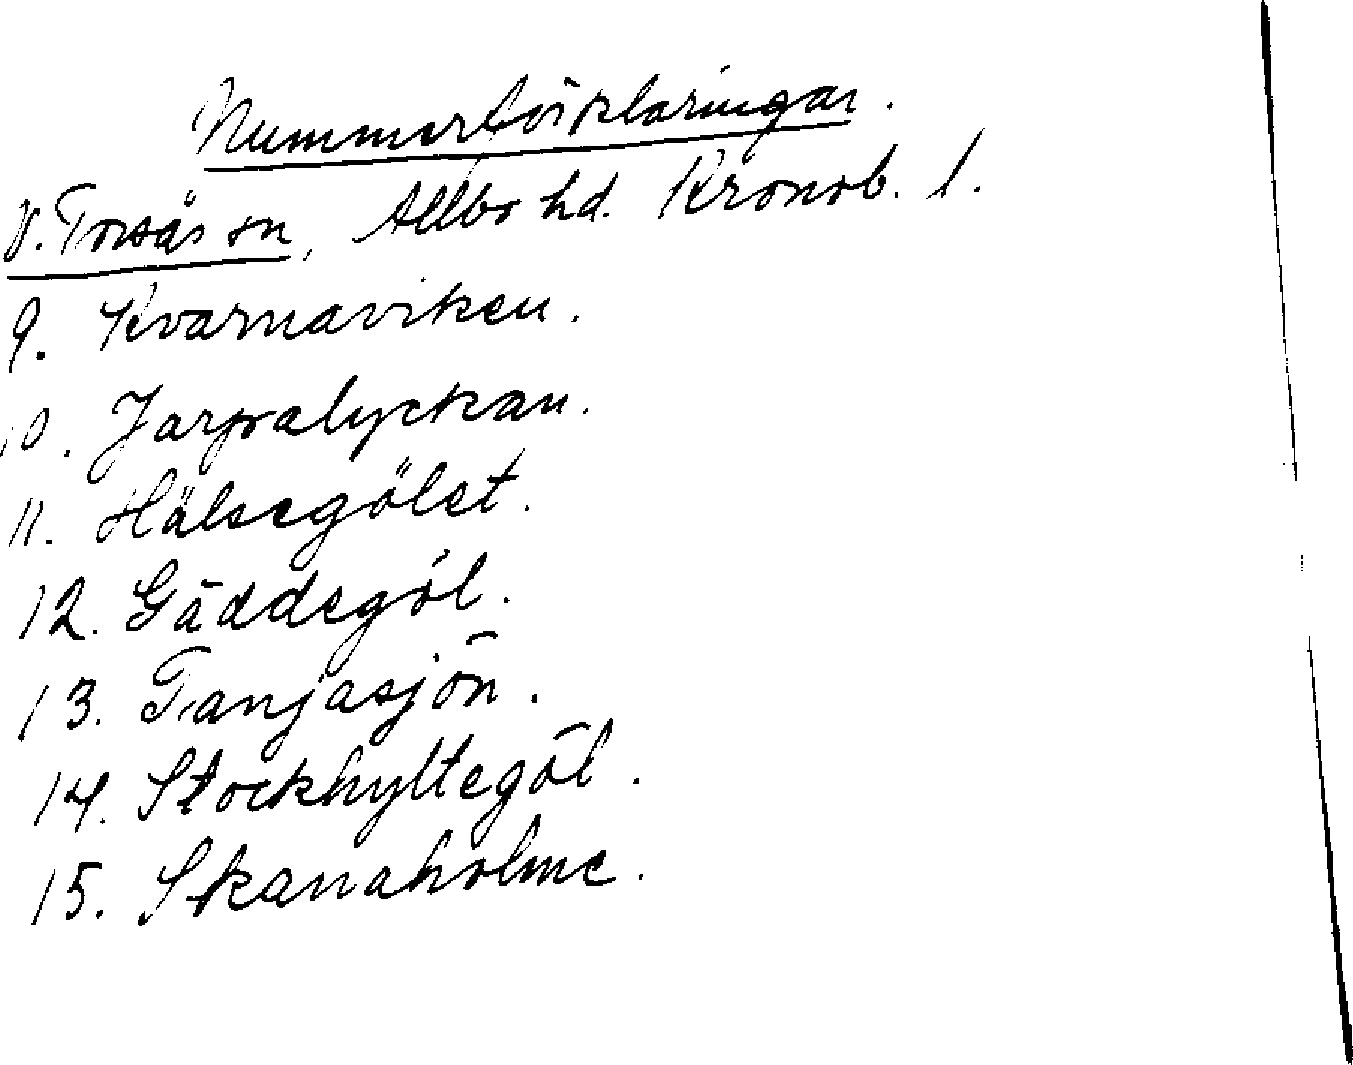 Nummerförklaringar.
V. Torsås sn, Allbo hd. Kronob. l.
9. Kvarnaviken.
10. Jarpalyckan.
11. Hälsegölet.
12. Gäddegöl.
13. Tanjasjön.
14. Stockhyltegöl.
15. Skanaholme.